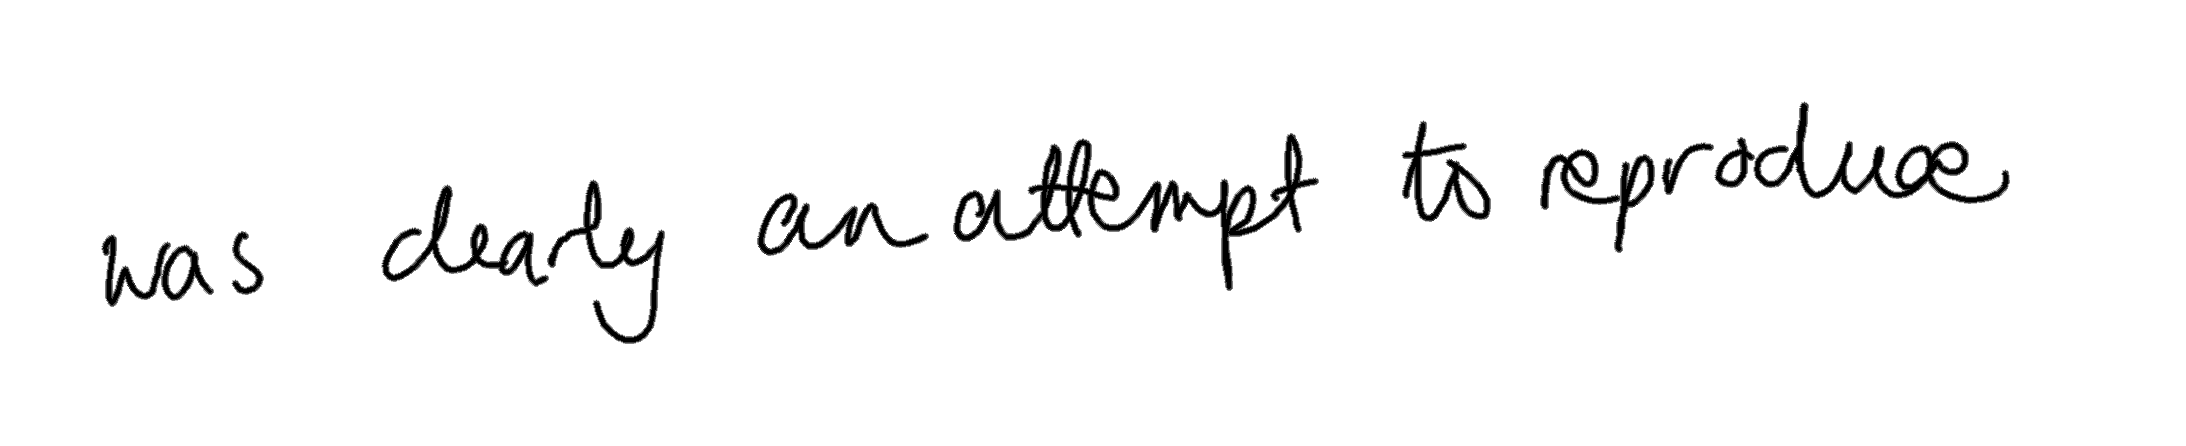 was clearly an attempt to reproduce